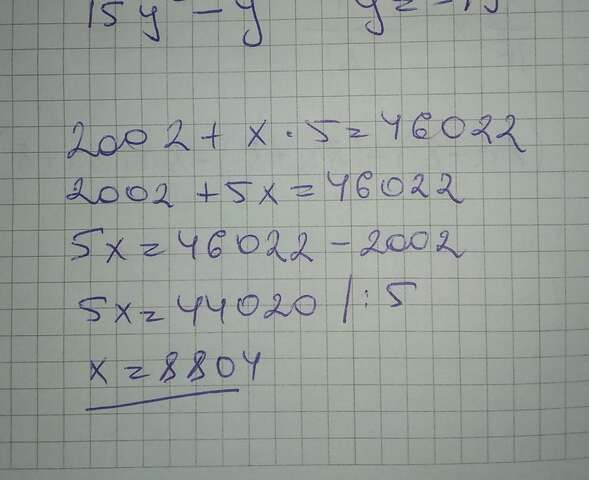 15y - y
2002 + x · 5 = 46022
2002 + 5x = 46022
5x = 46022 - 2002
5x = 44020 / : 5
x = 8804